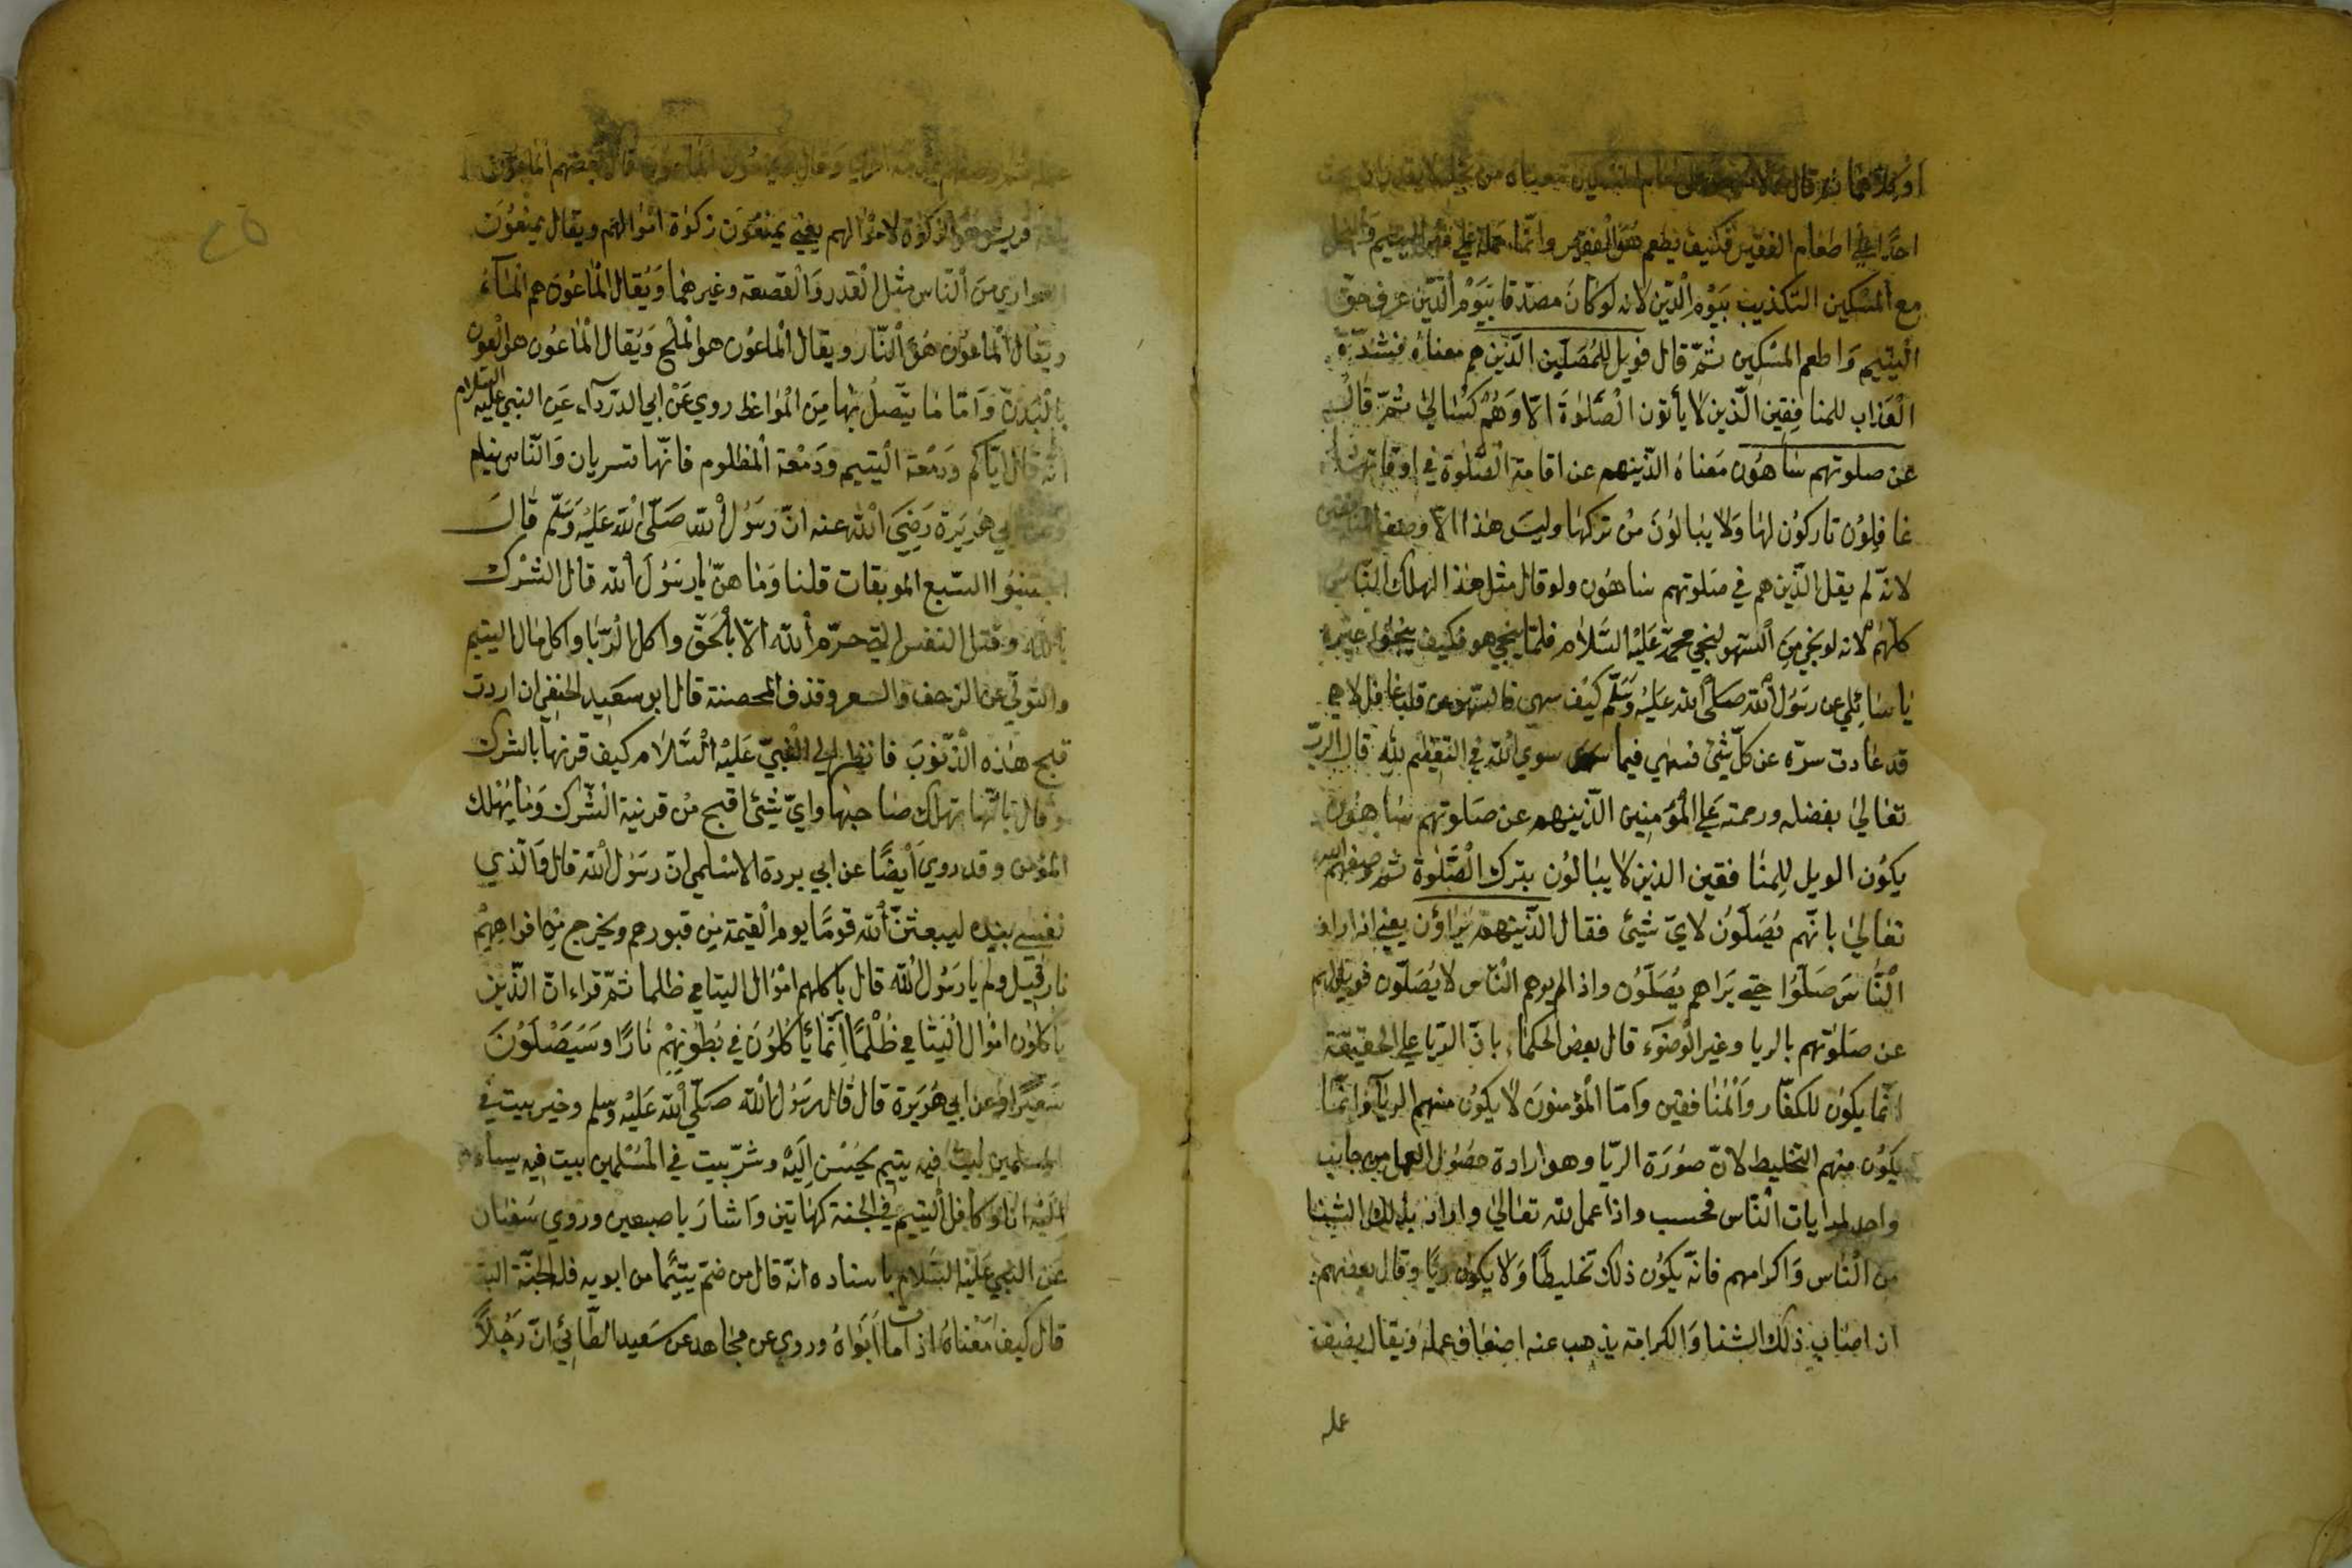 او كلاهما ثم قال ولا يحض على طعام المسكين معناه من بخله لا يقدر ان يحث
احدًا علي اطعام الفقير فكيف يطعم هو الفقير وانما حمله علي قهر اليتيم والبخل
مع المسكين التكذيب بيوم الدين لانه لو كان مصدقا بيوم الدين عرف حق
اليتيم واطعم المسكين ثم قال فويل للمصلين الذين هم معناه فشدة
العذاب للمنافقين الذين لا يأتون الصلوة الا وهم كسالي ثم قال
عن صلوتهم ساهون معناه الذينهم عن اقامة الصلوة في اوقاتها
غافلون تاركون لها ولا يبالون من تركها وليس هذا الا وصف المنافقين
لانه لم يقل الذين هم في صلوتهم ساهون ولو قال مثل هذا لهلك الناس
كلهم لانه لو نجي من السهو لنجي محمد عليه السلام فلما ينجي هو فكيف ينجوا غيره
يا سائلي عن رسول الله صلى الله عليه وسلم كيف سهي فالسهو من قلب غافل لاهي
قد غابت سره عن كل شئ فسهي فيما سوي الله في التعظيم لله قال الرب
تعالي بفضله ورحمته علي المؤمنين الذينهم عن صلوتهم ساهون
يكون الويل للمنافقين الذين لا يبالون بترك الصلوة ثم وصفهم الله
تعالي بانهم يصلون لاي شئ فقال الذينهم يراؤن يعني اذا راو
الناس صلوا حتي يراهم يصلون واذا لم يرهم الناس لا يصلون فويل لهم
عن صلوتهم بالريا وغير الوضوء قال بعض الحكماء بان الريا علي الحقيقة
انما يكون للكفار والمنافقين واما المؤمنون لا يكون منهم الرياء وانما
يكون منهم التخليط لان صورة الريا وهو ارادة حصول العمل من جانب
واحد لمرايات الناس فحسب واذا عمل لله تعالي واراد بذلك الثنا
من الناس واكرامهم فانه يكون ذلك تخليطًا ولا يكون ريًا وقال بعضهم
ان اصاب ذلك الثنا والكرامة يذهب عنه اضعاف عمله ويقال يضيف
عمله
وقال ويمنعون الماعون قال بعضهم الماعون
بلغة قريش هو الزكوة لاموالهم يعني يمنعون زكوة اموالهم ويقال يمنعون
العواري من الناس مثل القدر والقصعة وغيرهما ويقال الماعون هم الماء
ويقال الماعون هو النار ويقال الماعون هو الملح ويقال الماعون هو العون
بالبدن واما ما يتصل بها من المواعظ روي عن ابي الدرداء عن النبي عليه السلام
انه قال اياكم ودمعة اليتيم ودمعة المظلوم فانها تسريان والناس نيام
وعن ابي هريرة رضي الله عنه ان رسول الله صلى الله عليه وسلم قال
اجتنبوا السبع الموبقات قلنا وما هن يا رسول الله قال الشرك
بالله وقتل النفس التي حرم الله الا بالحق واكل الربا واكل مال اليتيم
والتولي عن الزحف والسحر وقذف المحصنة قال ابو سعيد الحنفي ان اردت
قبح هذه الذنوب فانظر الي النبي عليه السلام كيف قرنها بالشرك
وقال بانها تهلك صاحبها واي شئ اقبح من قرينة الشرك وما يهلك
المؤمن وقد روي ايضًا عن ابي بردة الاسلمي ان رسول الله قال والذي
نفسي بيده ليبعثن الله قومًا يوم القيمة من قبورهم ويخرج من افواههم
نار قيل ولم يا رسول الله قال باكلهم اموال اليتامي ظلما ثم قراء ان الذين
ياكلون اموال اليتامي ظلمًا انما ياكلون في بطونهم نارًا وسيصلون
سعيرًا وعن ابي هريرة قال قال رسول الله صلي الله عليه وسلم وخير بيت في
المسلمين بيت فيه يتيم يحسن اليه وشر بيت في المسلمين بيت فيه يساء
اليه انا وكافل اليتيم في الجنة كهاتين واشار باصبعين وروي سفيان
عن النبي عليه السلام باسناده انه قال من ضم يتيمًا من ابويه فله الجنة البتة
قال كيف معناه اذ مات ابواه وروي عن مجاهد عن سعيد الطائي ان رجلاً